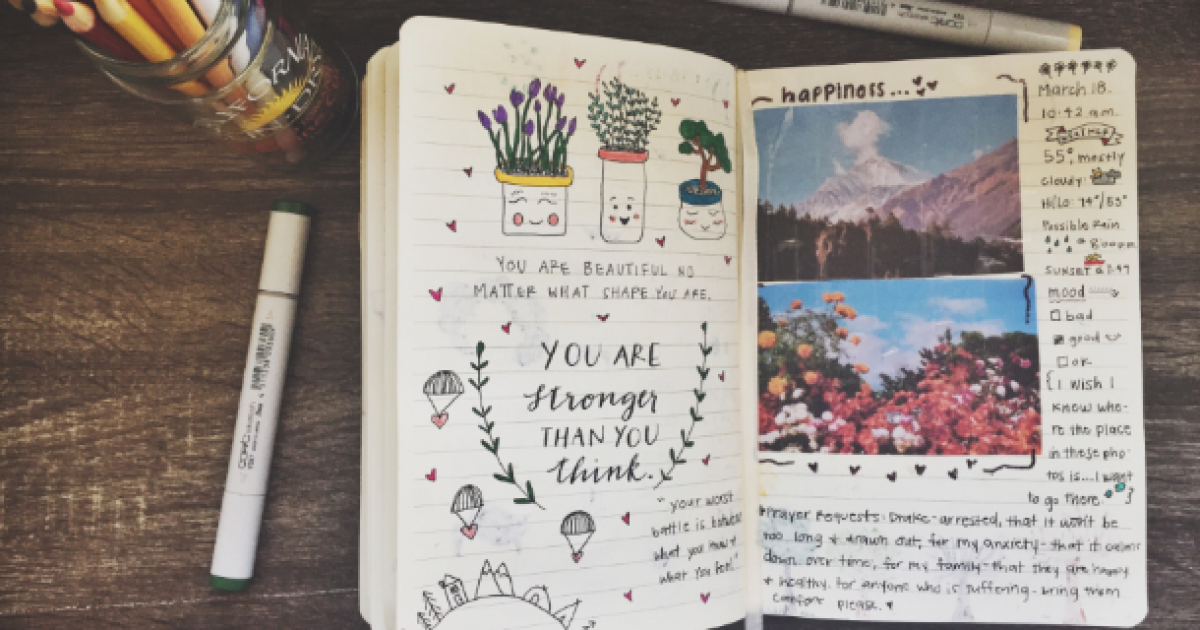 YOU ARE BEAUTIFUL NO
MATTER WHAT SHAPE YOU ARE.
YOU ARE
stronger
THAN YOU
think.
"your worst
battle is between
what you know &
what you feel."
happiness...
March 18.
10:42 a.m.
55°, mostly
cloudy.
Hi/Lo: 74°/53°
Possible Rain
SUNSET @
mood
bad
good
ok
{I wish I
knew whe-
re the place
in these pho-
tos is...I want
to go there. }
Prayer Requests: Drake-arrested, that it won't be
too long & drawn out, for my anxiety-that it calms
down over time, for my family-that they are happy
+ healthy. for anyone who is suffering-bring them
comfort please.
COPIC